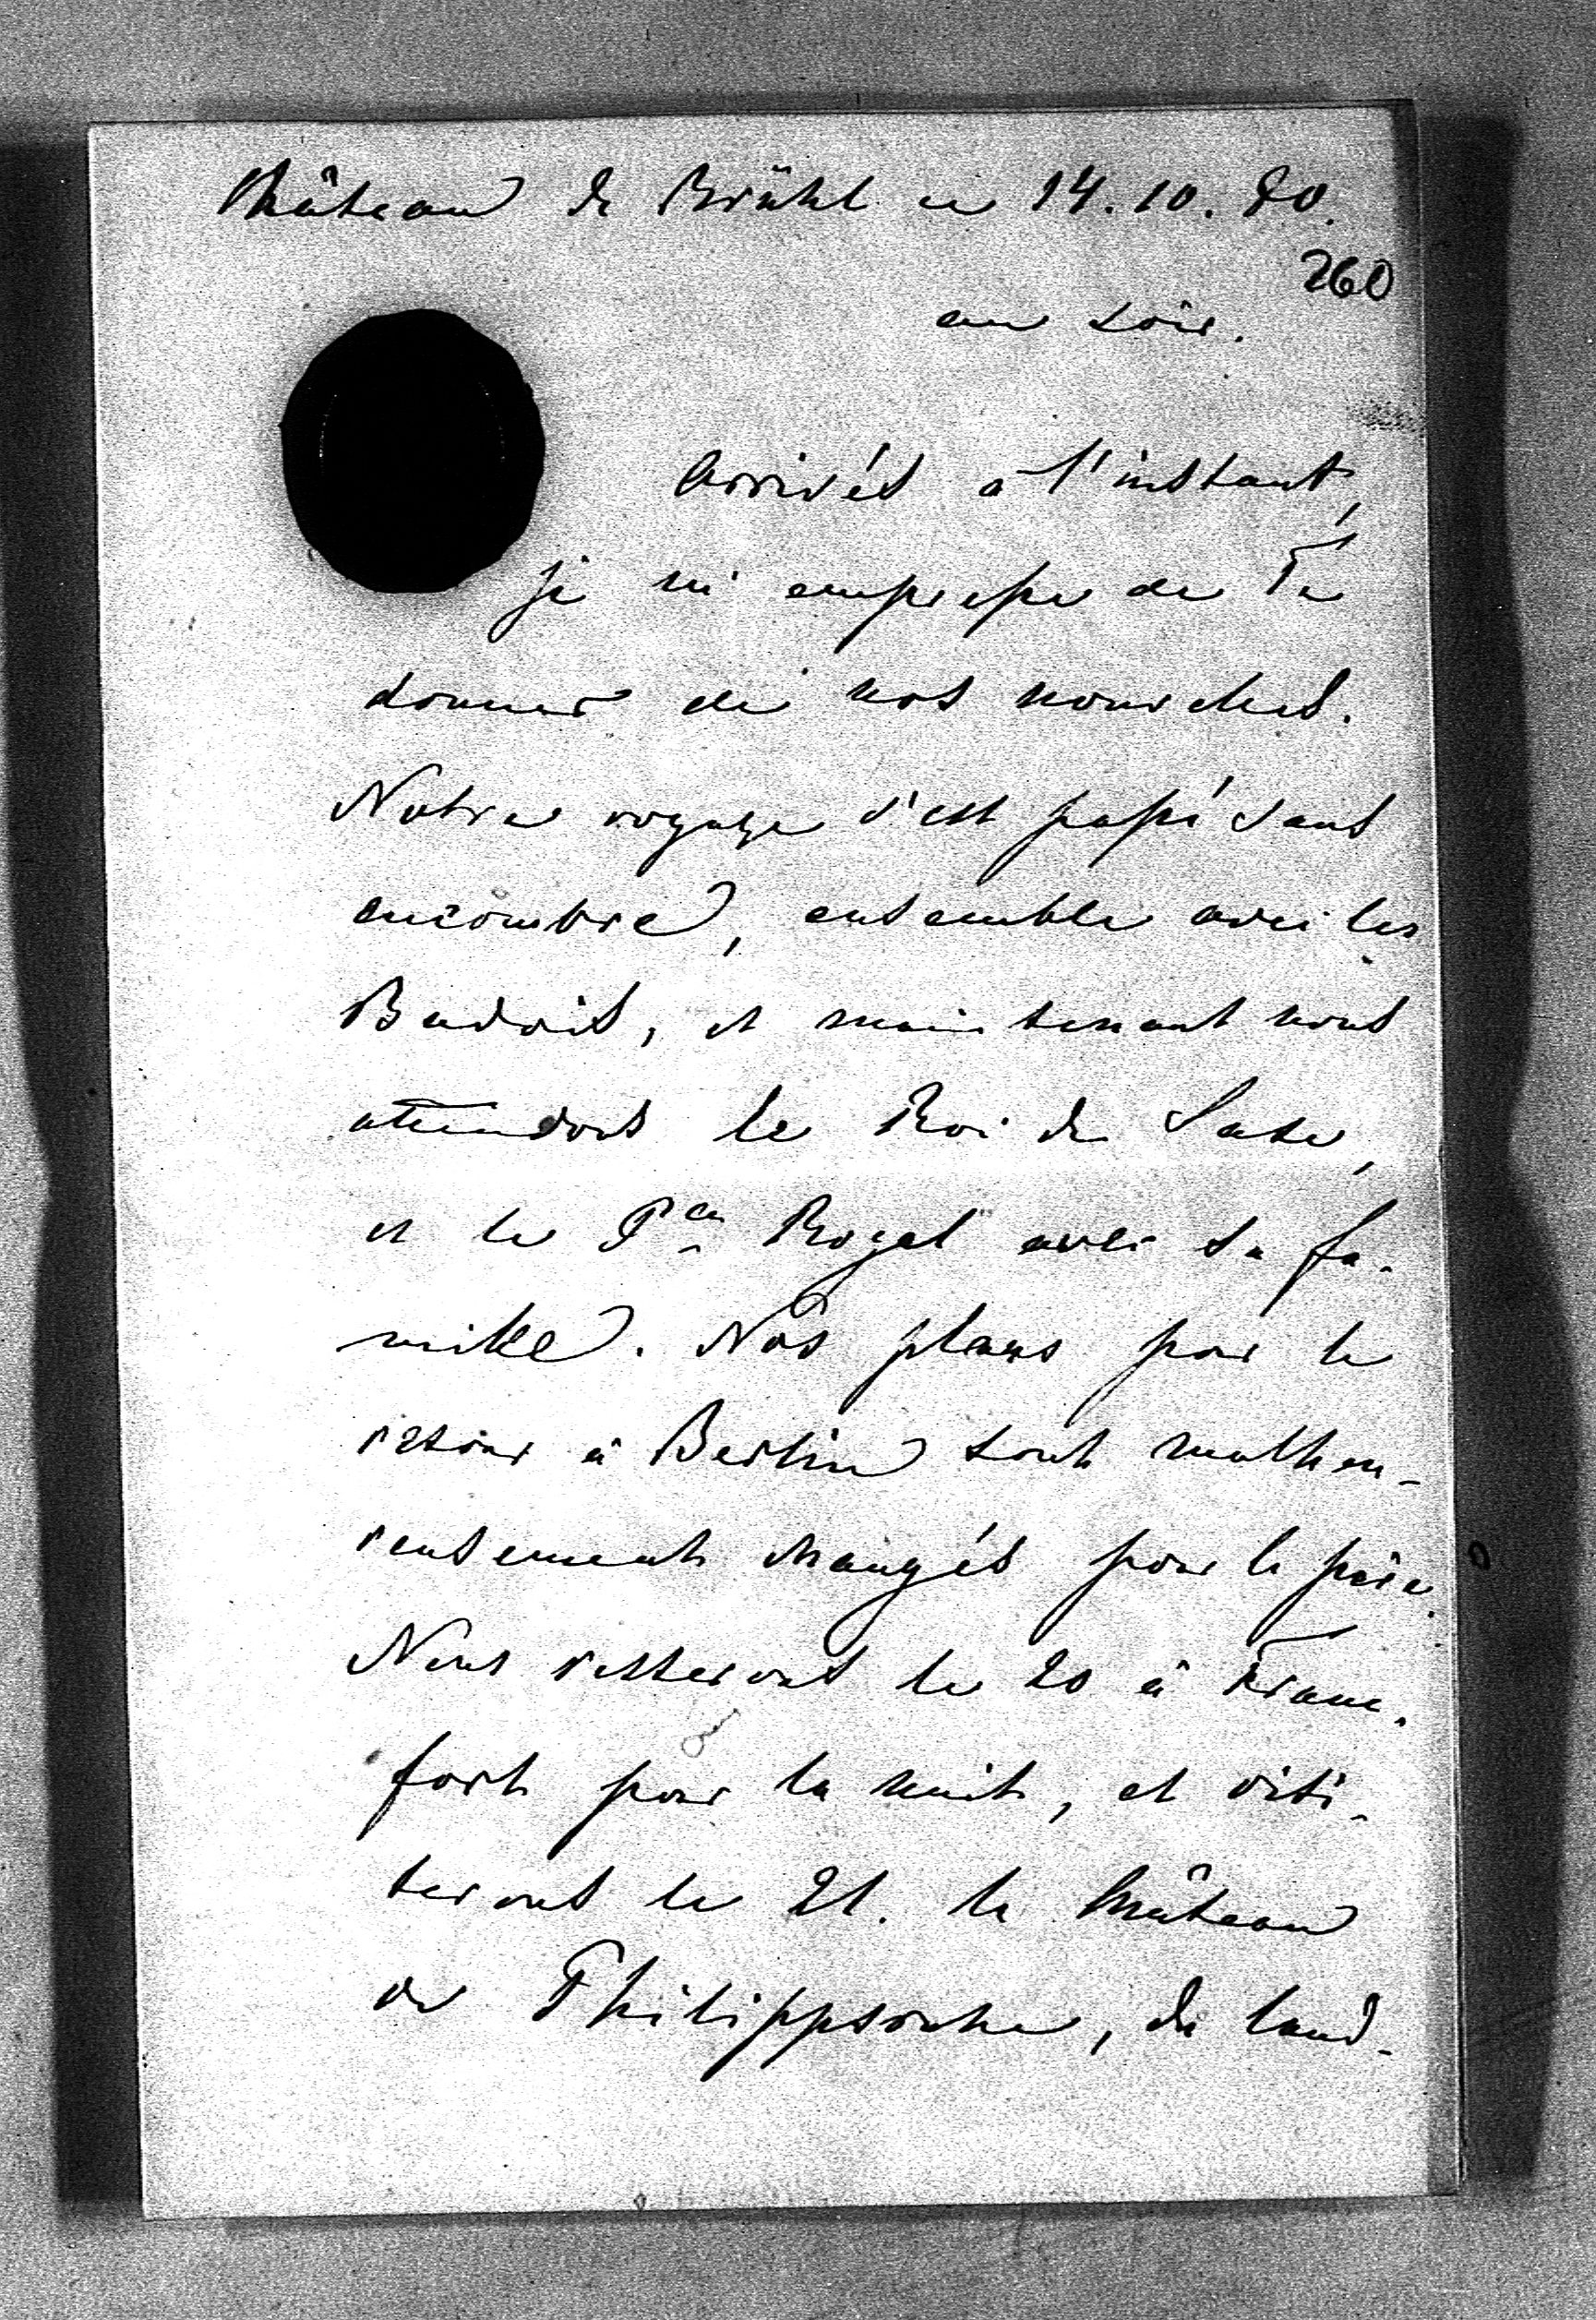 Château de Brühl ce 14.10.80.
260
au soir.
Arrivés à l'instant,
je m'empresse de Te
donner de nos nouvelles.
Notre voyage s'est passé sans
encombre, ensemble avec les
Badois, et maintenant nous
attendons le Roi de Saxe,
et le Pce Royal avec sa fa-
mille. Nos plans pour le
retour à Berlin sont malheu-
reusement changés pour le pire.
Nous resterons le 20 à Franc-
fort pour la nuit, et visi-
terons le 21. le Château
de Philippsruhe, du land-